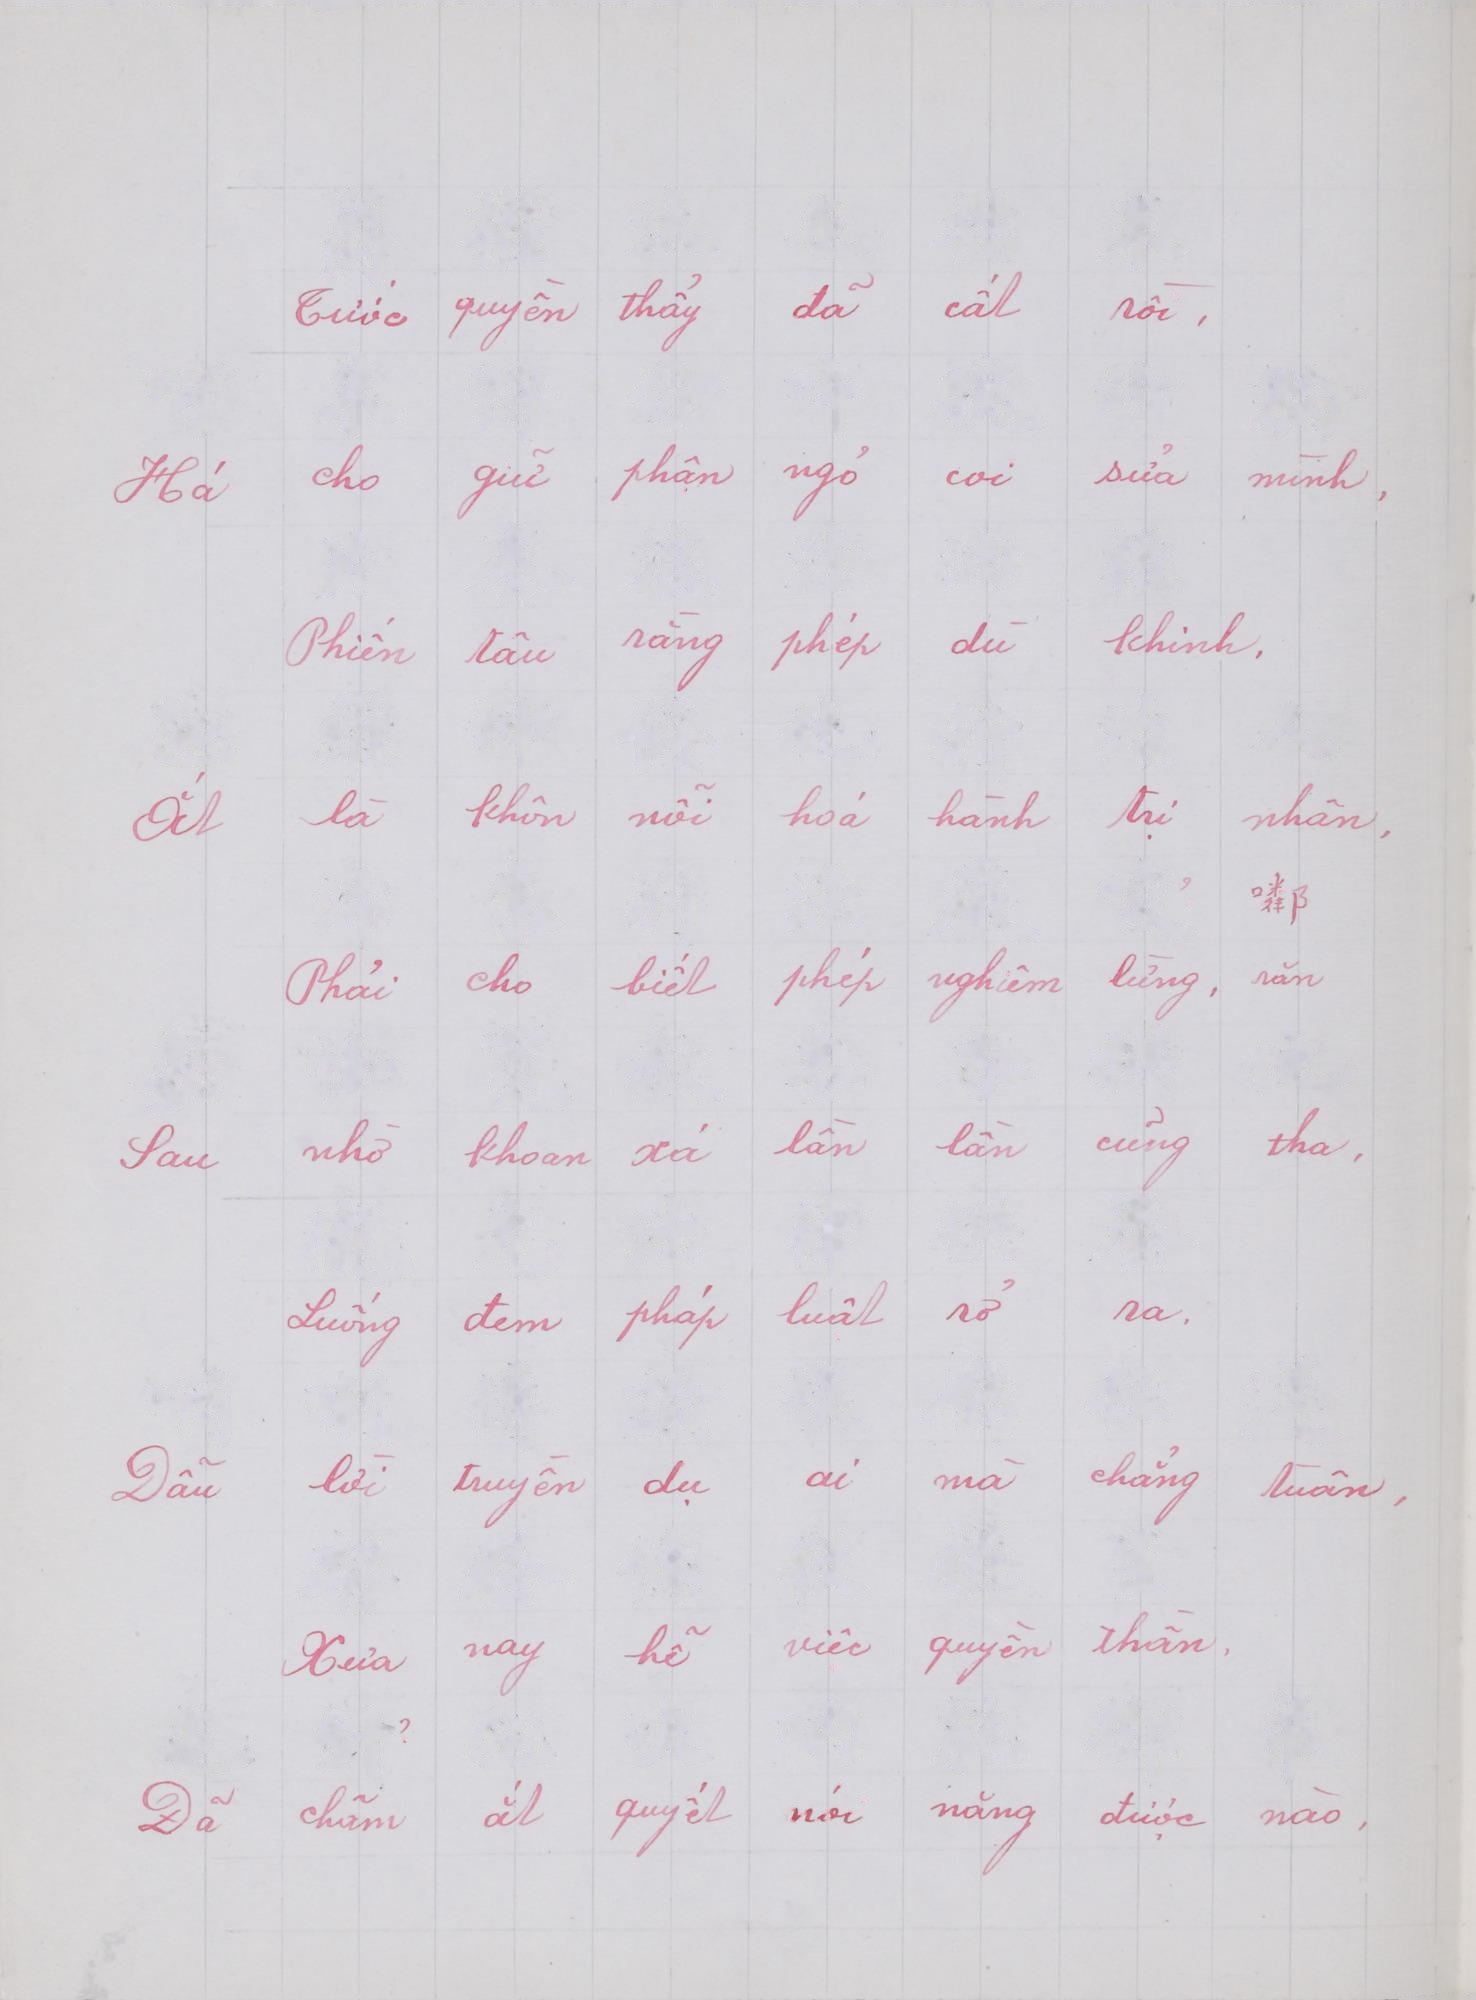 Tước quyền thẩy đã cất rồi,
Há cho giữ phận ngỏ coi sửa mình,
Phiến tâu rằng phép dù khinh,
Ắt là khôn nỗi hoá hành trị nhân,
Phải cho biết phép nghiêm lừng, răn
Sau nhờ khoan xá lần lần cũng tha,
Luống đem pháp luật rở ra.
Dẫu lời truyền dụ ai mà chẳng tuân,
Xưa nay hễ việc quyền thần,
Đã chăm ắt quyết nói năng được nào,